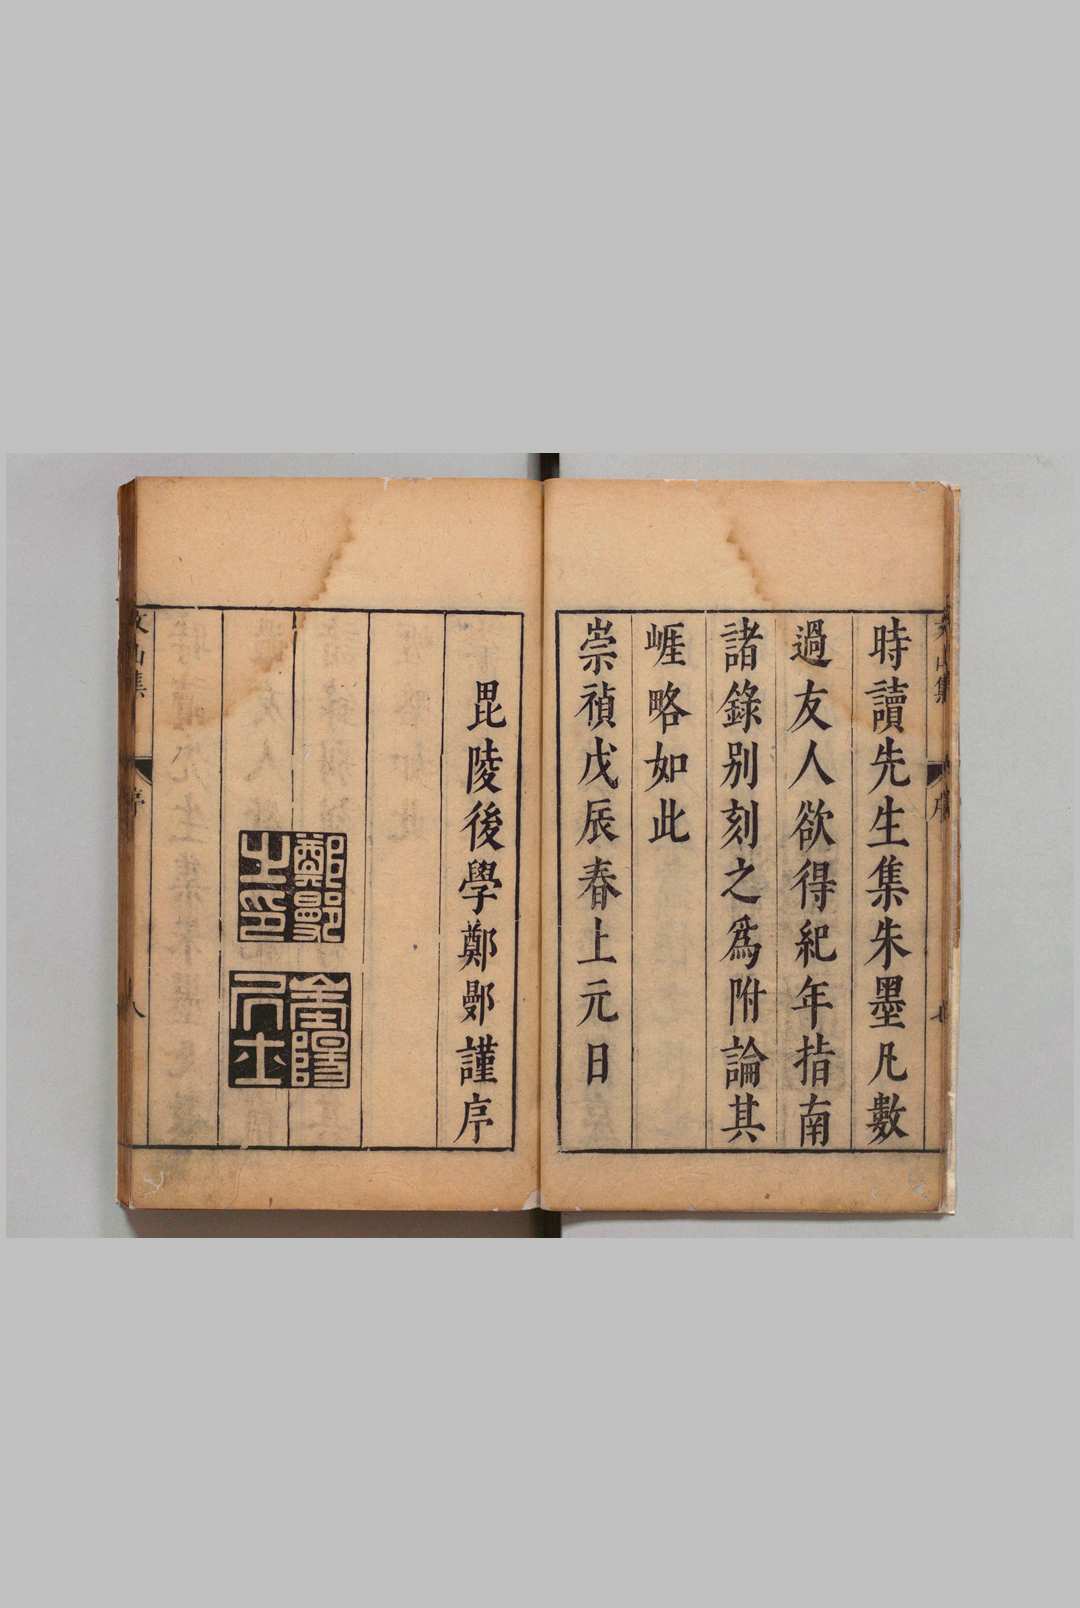 時讀先生集朱墨凡數
過友人欲得紀年指南
諸錄別刻之爲附論其
崕略如此
崇禎戊辰春上元日
毘陵後學鄭鄤謹序
鄭鄤
之印
文山集
序
八